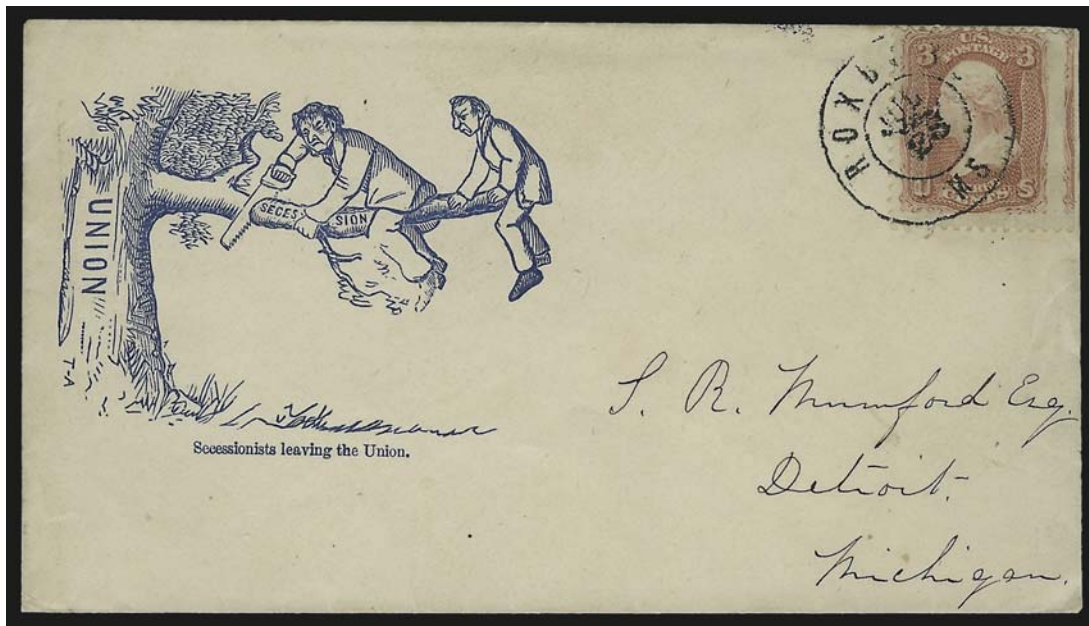 UNION
SECES SION
T-A
Secessionists leaving the Union.
ROXB
MS
3 U.S. 3
POSTAGE
U S
S. R. Mumford Esq.
Detroit.
Michigan.